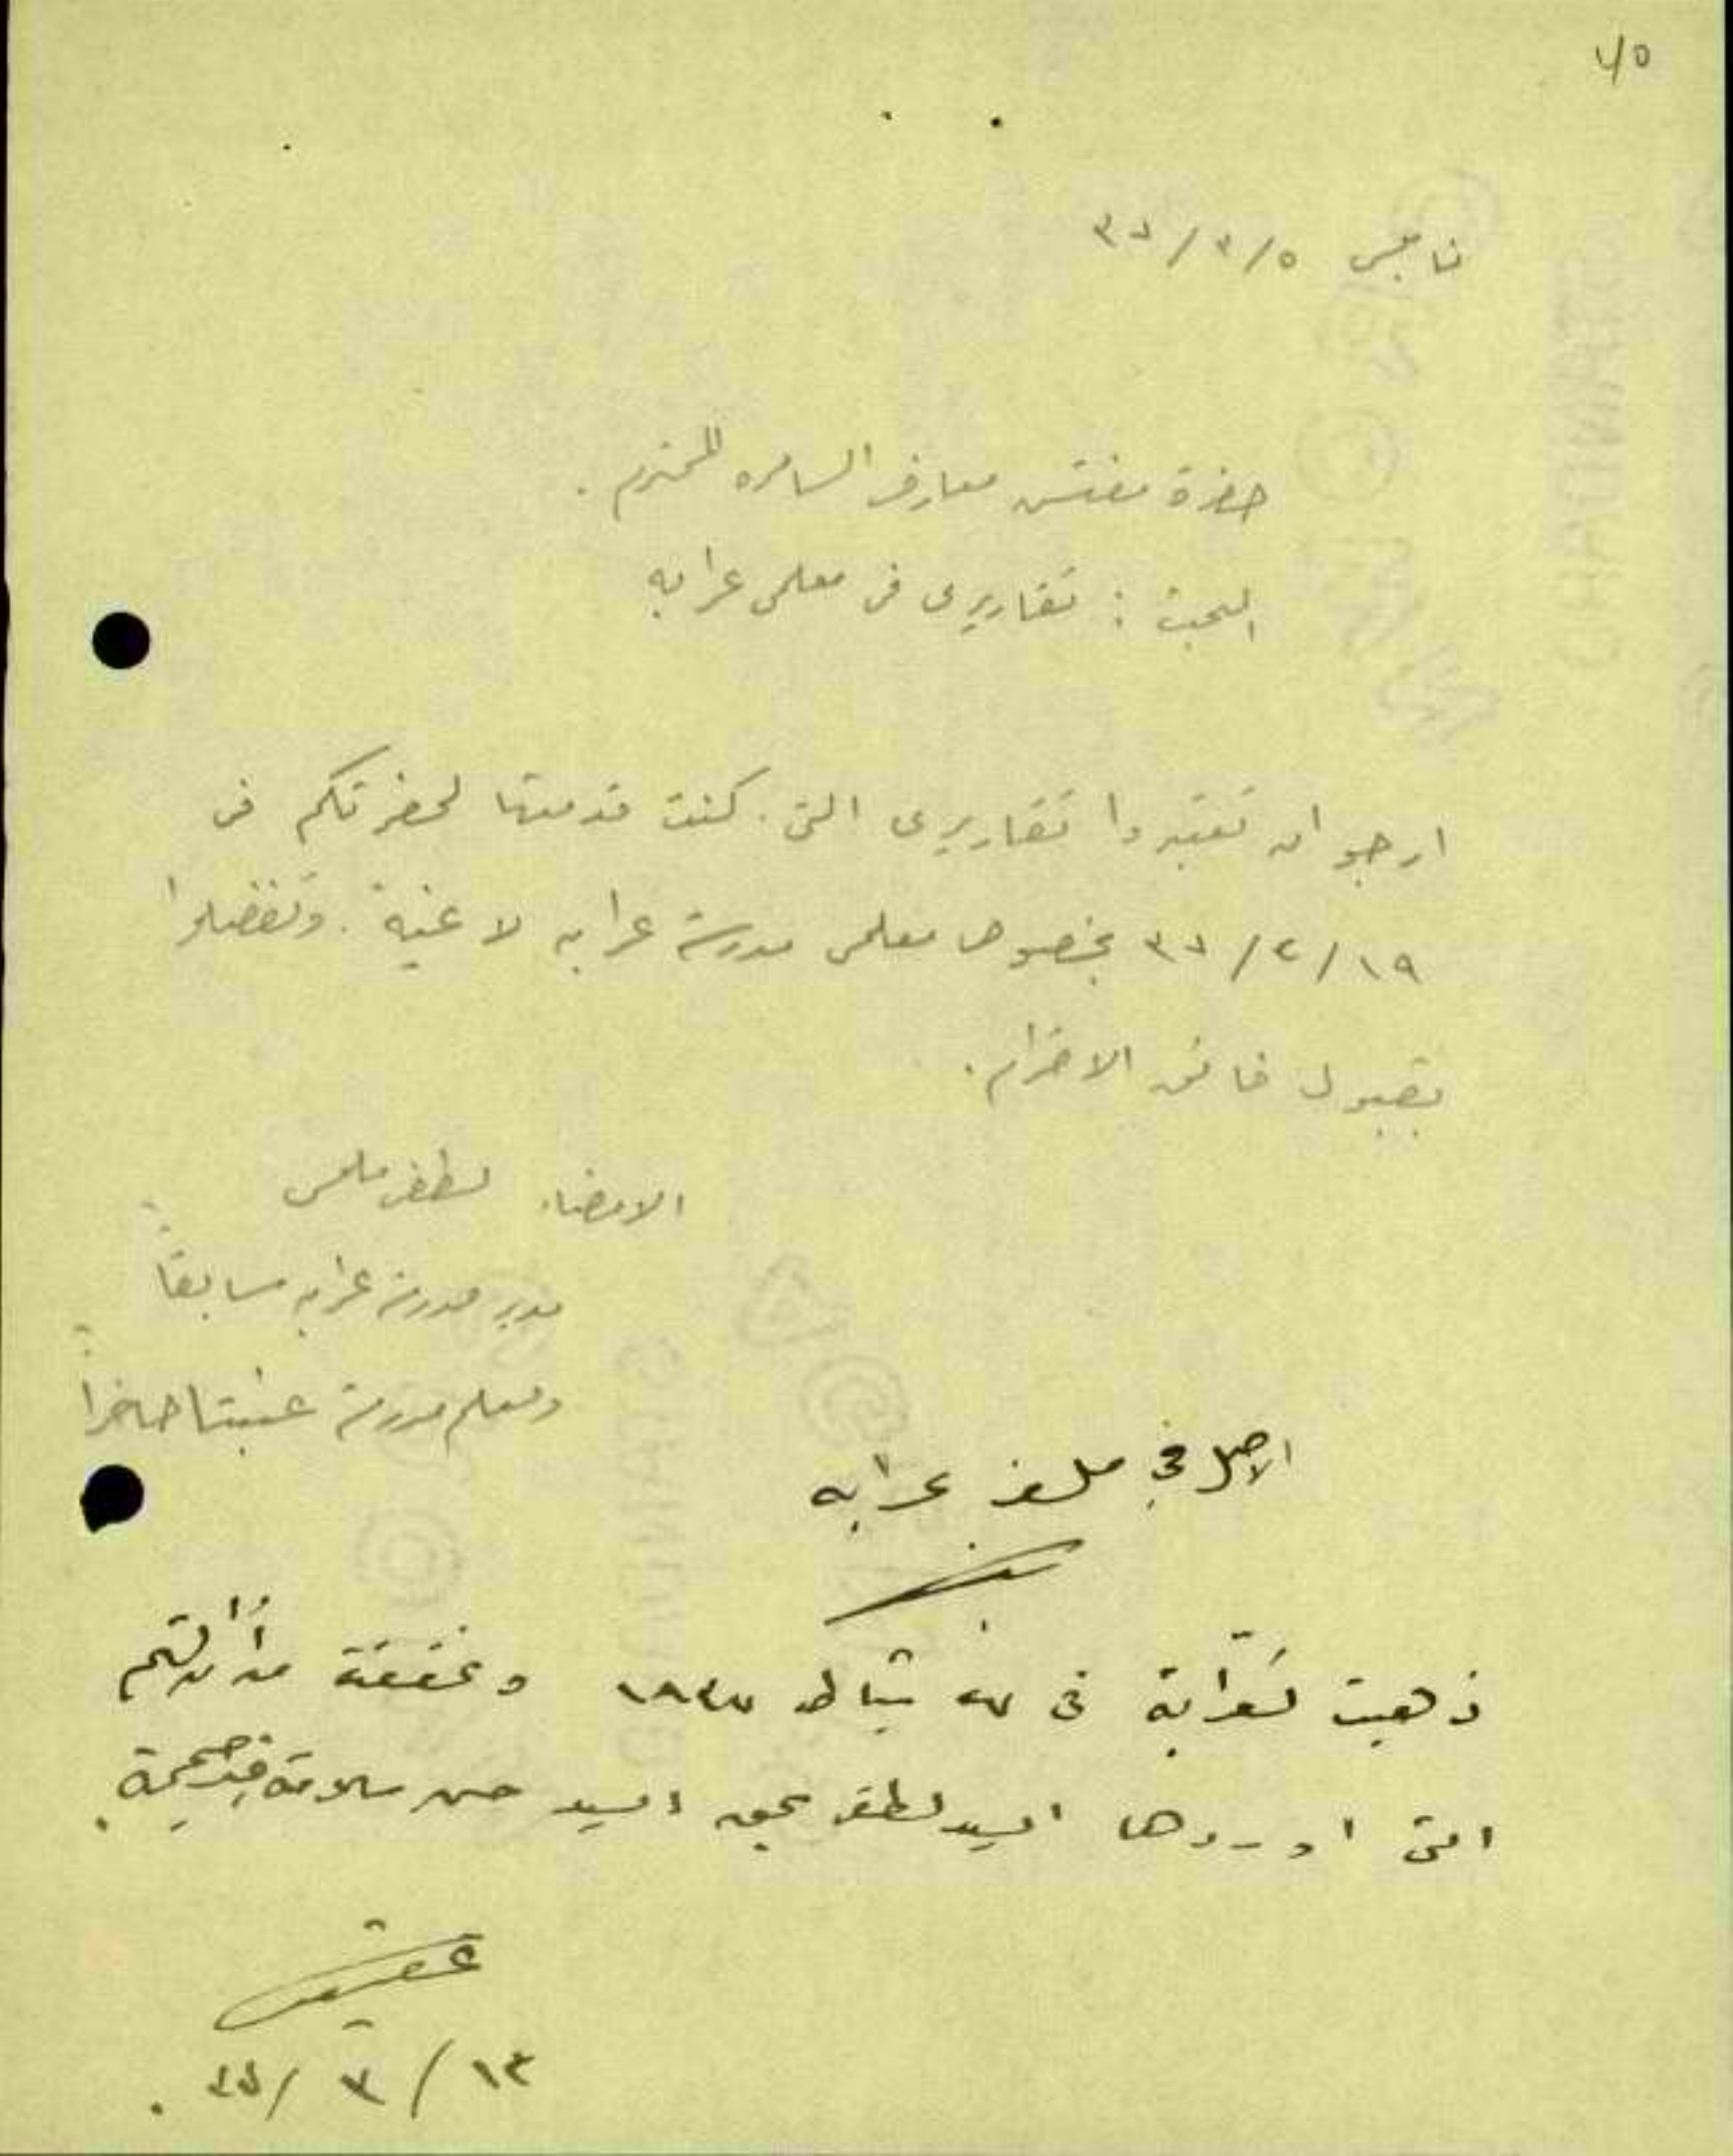 نابلس ٥/٣/٣٧
حضرة مفتش معارف السامره المحترم .
البحث : تقاريري في معلمي عرابه
ارجو ان تعتبروا تقاريري التي كنت قدمتها لحضرتكم في
١٩/٢/٣٧ بخصوص معلمي مدرسة عرابه لاغية . وتفضلوا
بقبول فائق الاحترام .
الامضاء لطفي ملحس
مدير مدرسة عرابه سابقاً
ومعلم مدرسة عنبتا حاضرا
الاصل في ملف عرابه
ذهبت لعرّابة في شباط وتحققت من ان التهم
التي اوردها السيد لطفي بحق السيد حسن سلامة غير صحيحة .
١٣/٣/٣٧ .